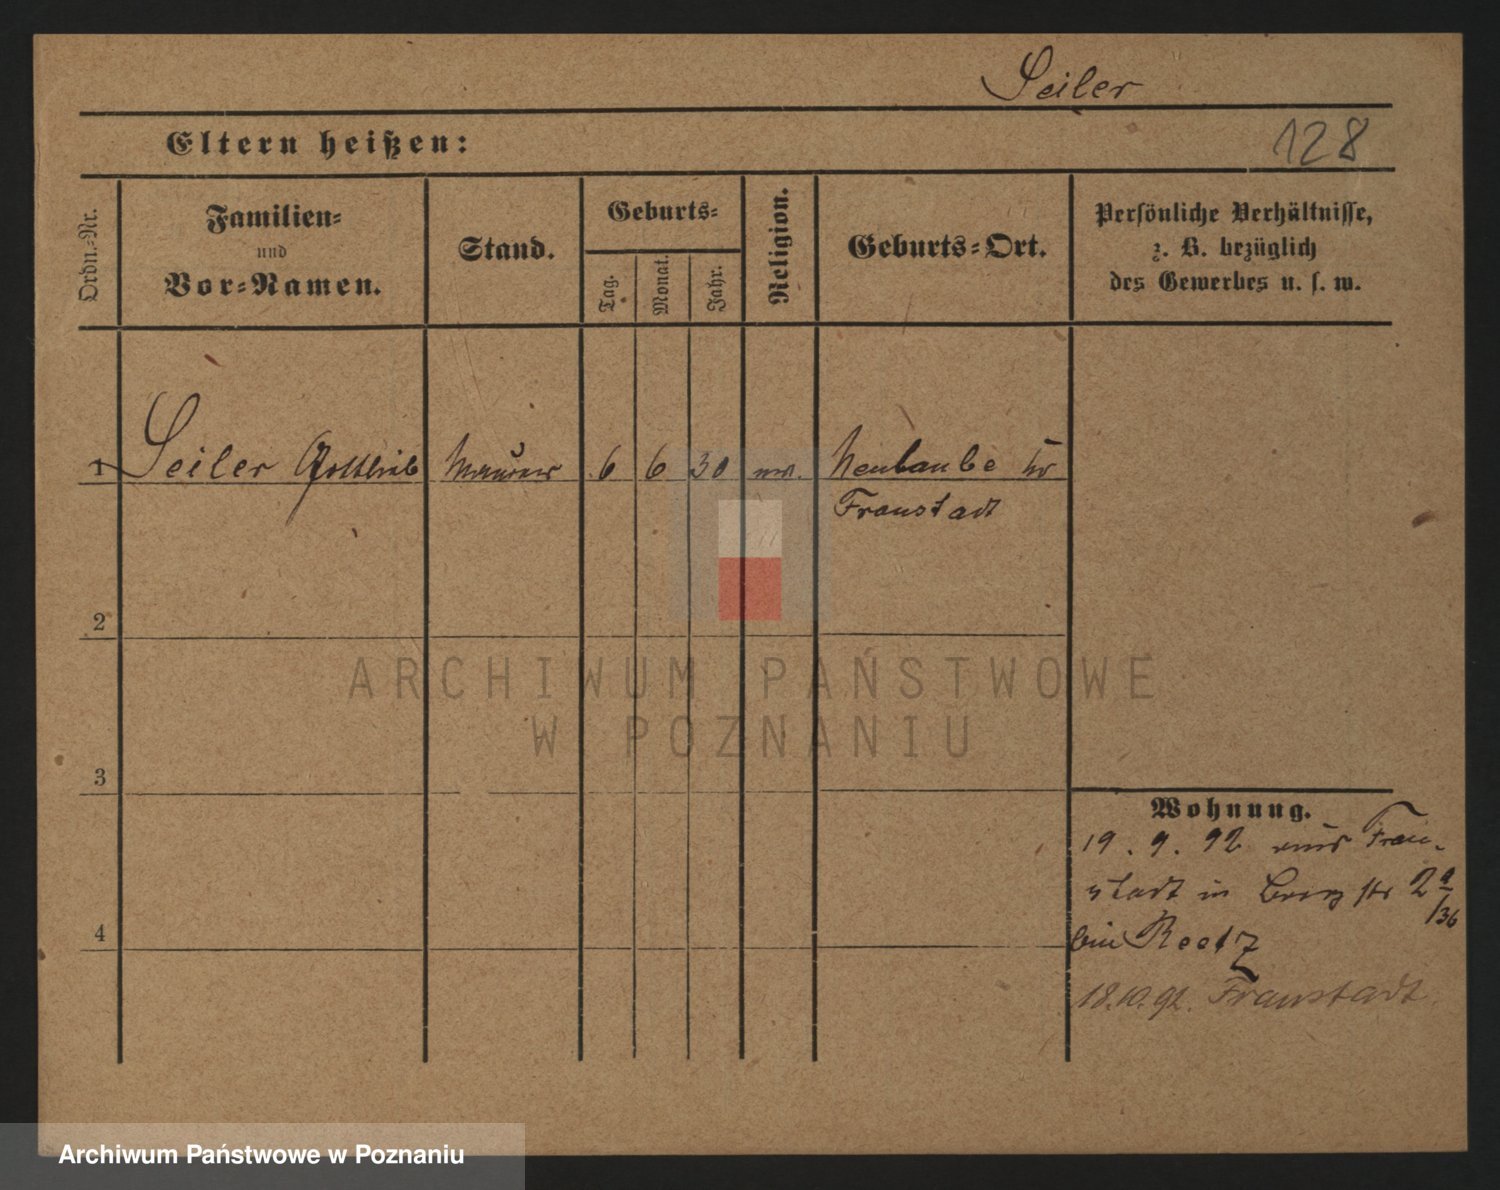 Seiler
Eltern heißen:
128
Ordn.-Nr.
Familien-
und
Vor-Namen.
Stand.
Geburts-
Tag.
Monat.
Jahr.
Religion.
Geburts-Ort.
Persönliche Verhältnisse,
z. B. bezüglich
des Gewerbes u. s. w.
1 Seiler Gottlieb Maurer 6 6 30 Neulaube Kr
Fraustadt
2
ARCHIWUM PAŃSTWOWE
W POZNANIU
3
Wohnung.
19. 9. 92 aus Frau-
stadt in Berg str 2
/36
4
bei Reetz
18.10.92. Fraustadt
Archiwum Państwowe w Poznaniu